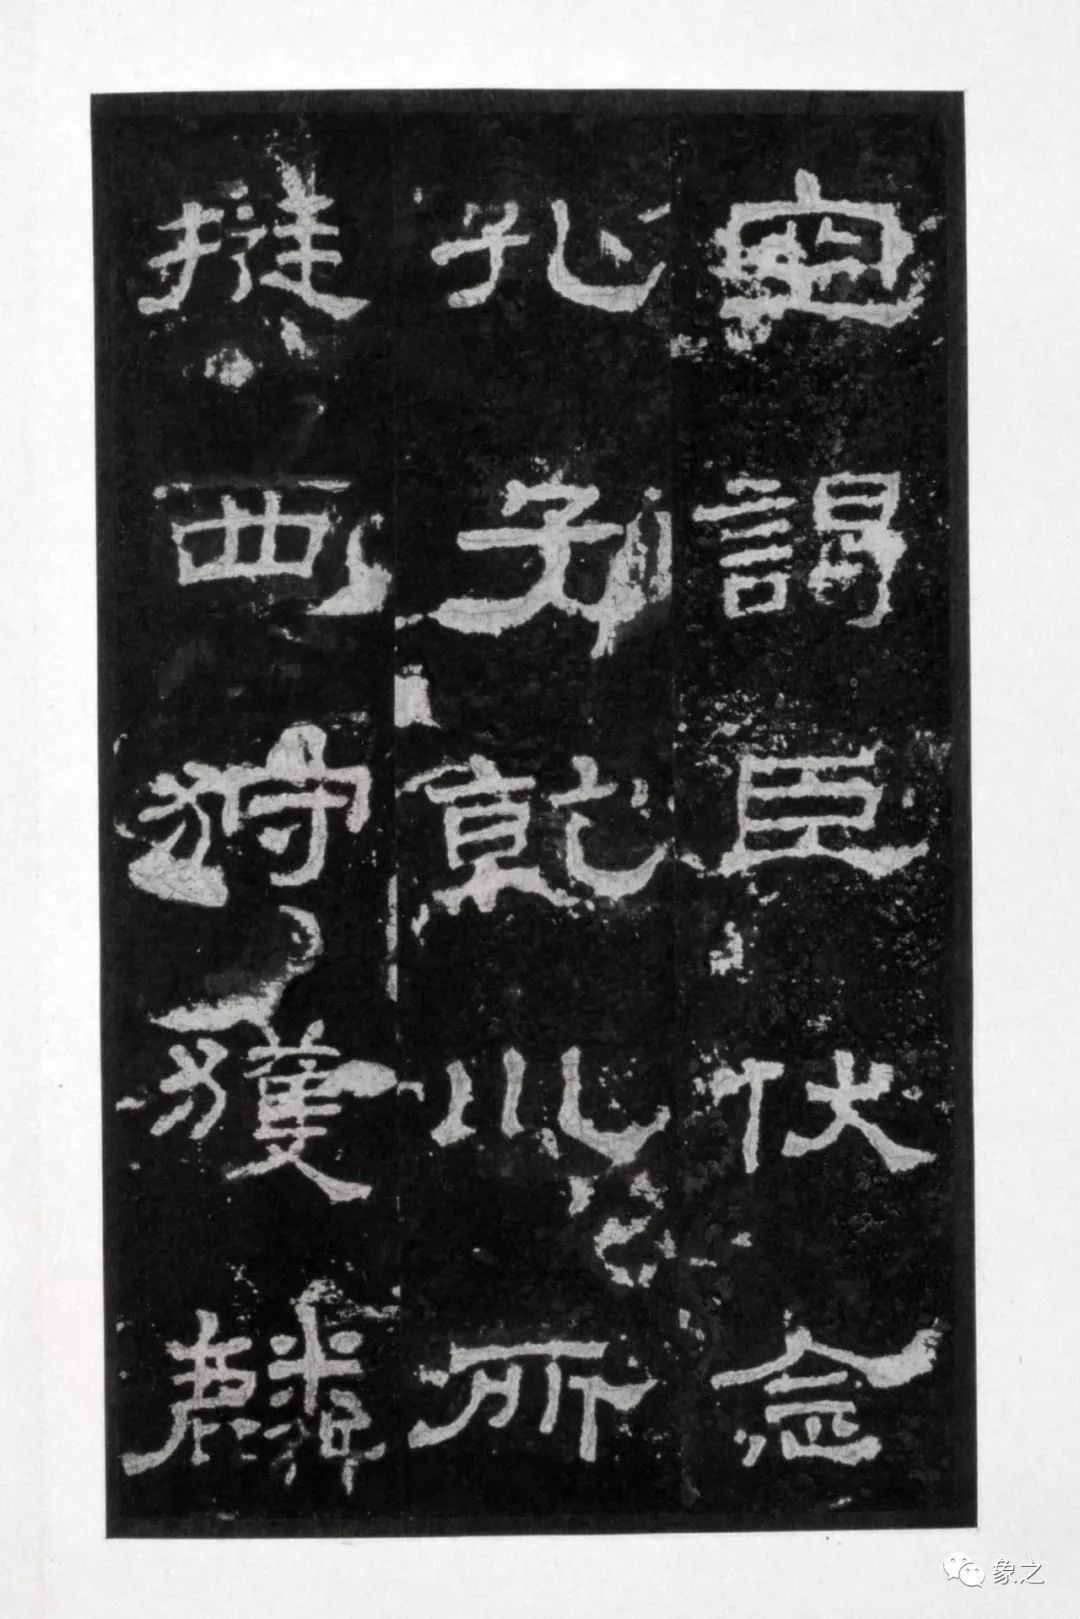 空謁臣伏念
孔子乾巛所
挺西狩獲麟
象之